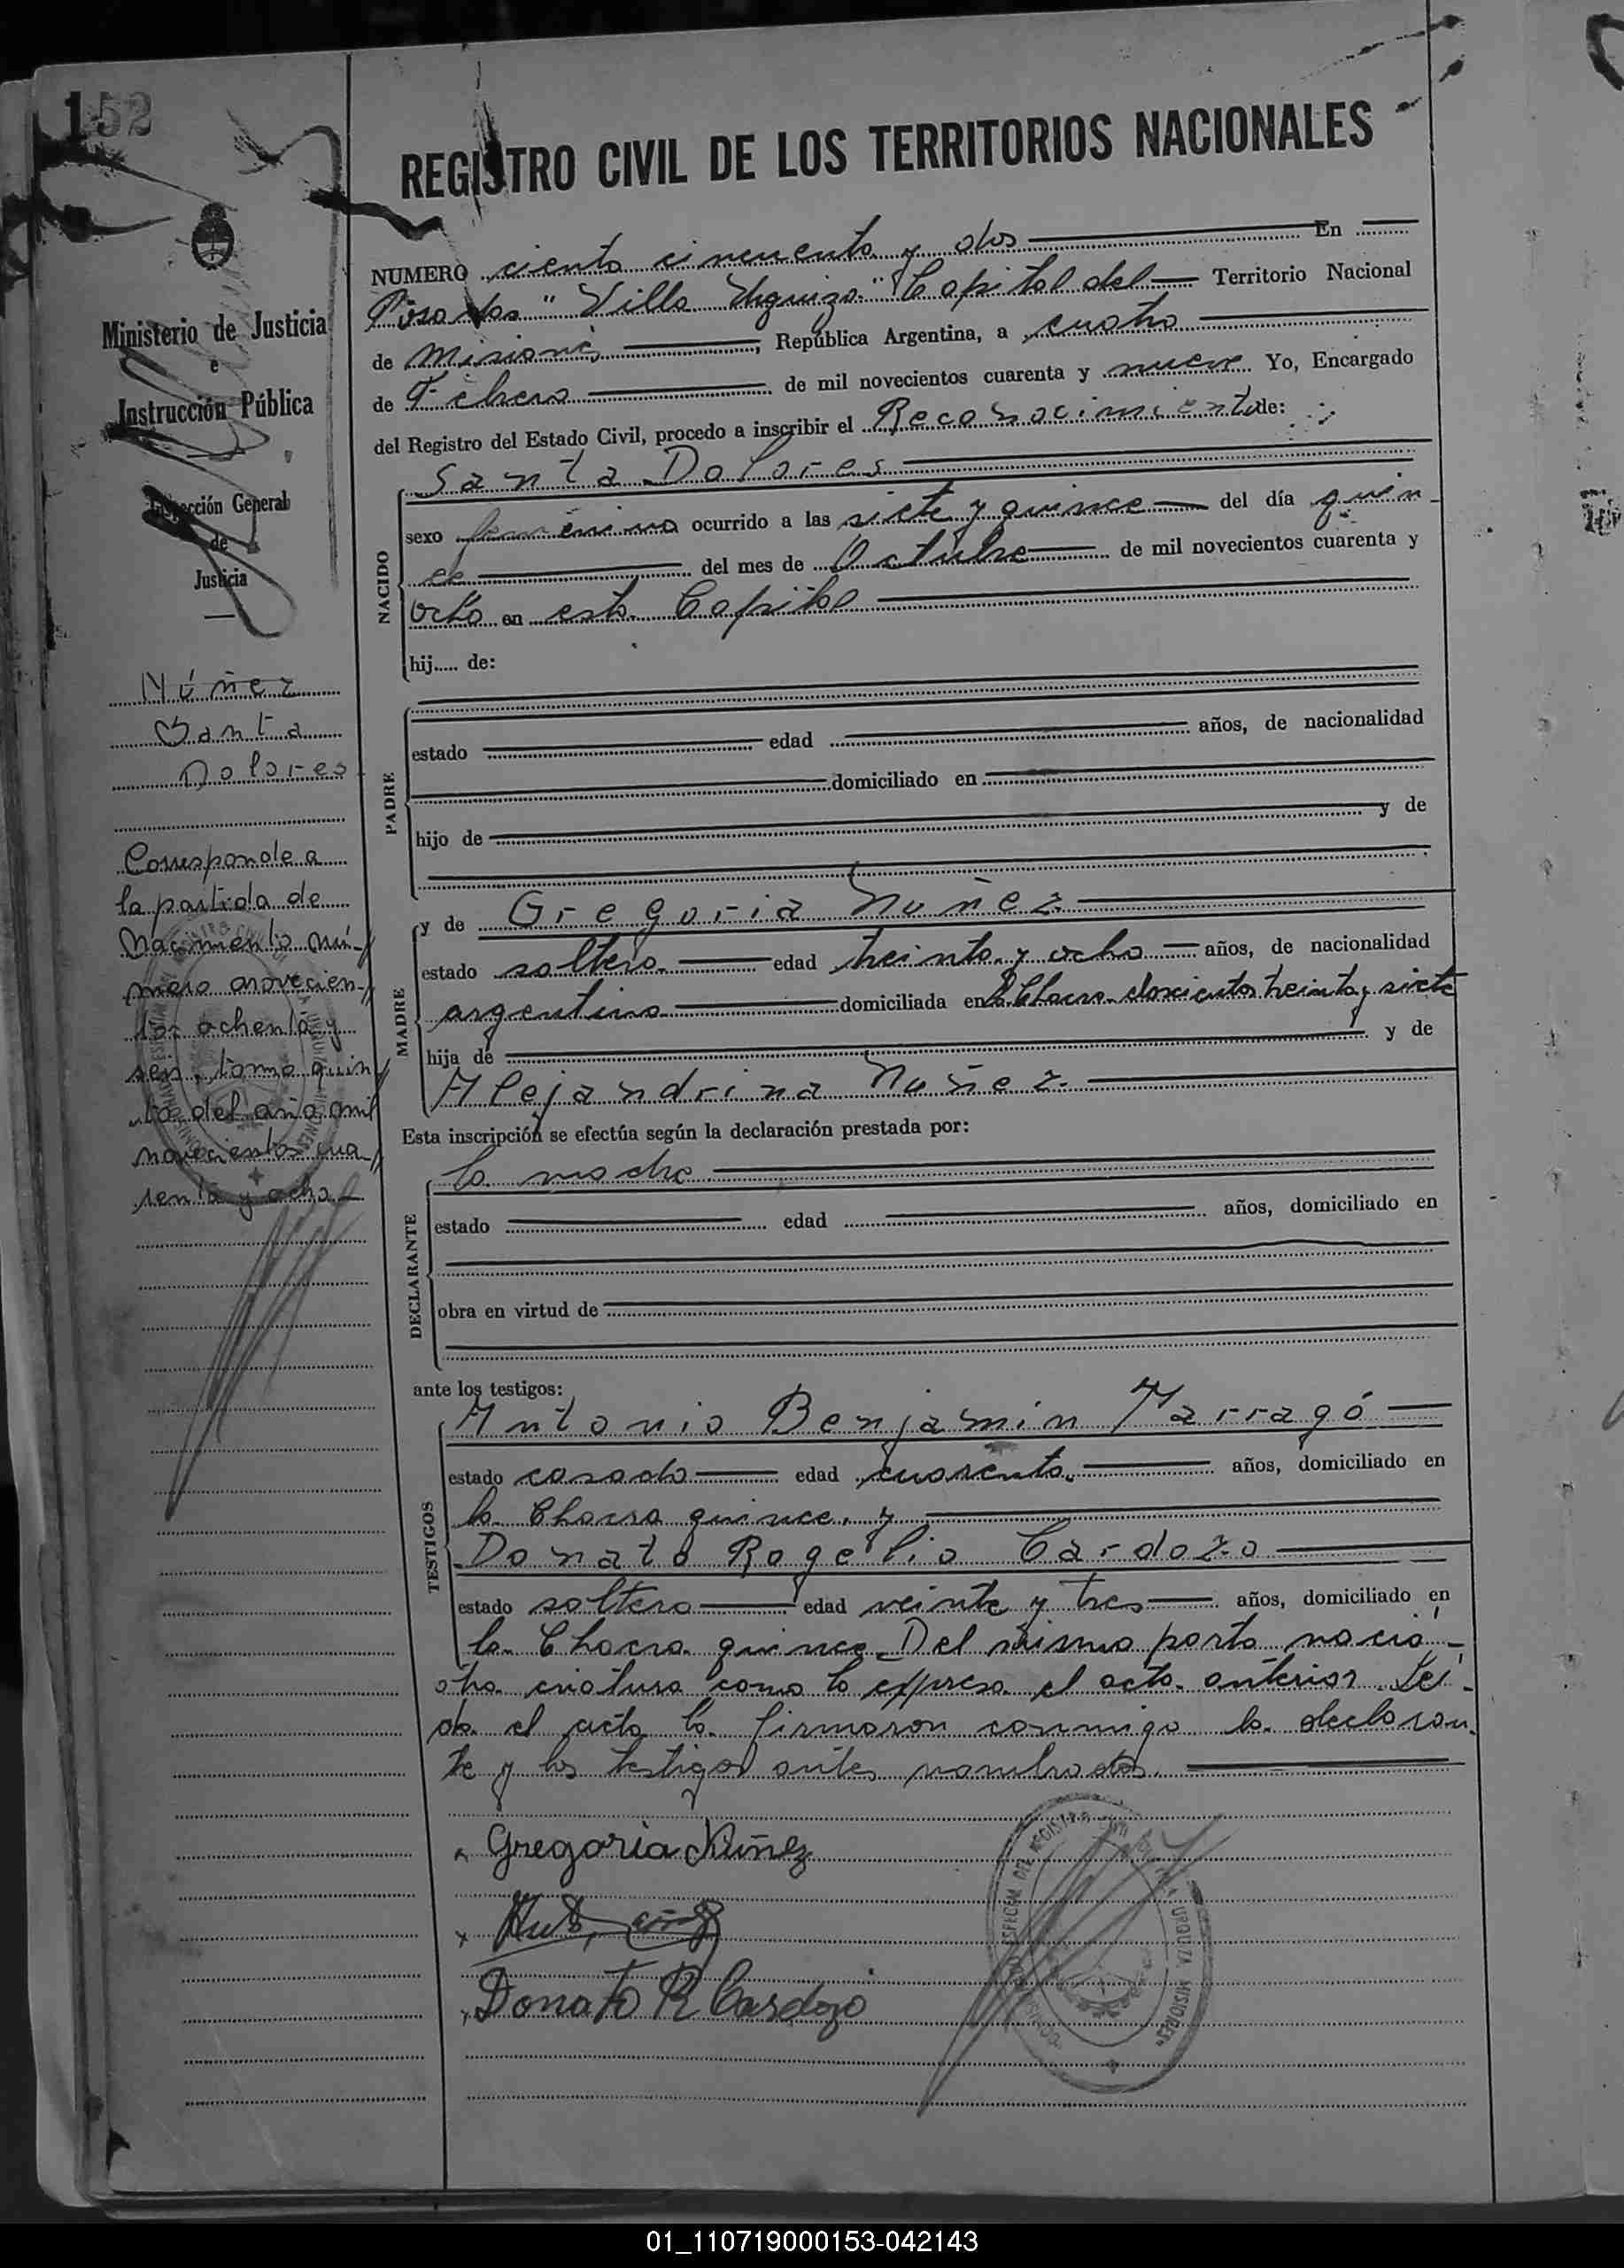 152
Ministerio de Justicia
e
Instrucción Pública
Inspección General
de
Justicia
Núñez
Santa
Dolores
Corresponde a
la partida de
Nacimiento nú-
mero novecien-
tos ochenta y
seis, tomo quin
to del año mil
novecientos cua-
renta y ocho
REGISTRO CIVIL DE LOS TERRITORIOS NACIONALES
NUMERO ciento cincuenta y dos En
Posadas "Villa Urquiza" Capital del Territorio Nacional
de Misiones, República Argentina, a cuatro
de Febrero de mil novecientos cuarenta y nueve Yo, Encargado
del Registro del Estado Civil, procedo a inscribir el Reconocimiento de:
NACIDO
Santa Dolores
sexo femenino ocurrido a las siete y quince del día quin-
ce del mes de Octubre de mil novecientos cuarenta y
ocho en esta Capital
hij..... de:
PADRE
estado edad años, de nacionalidad
domiciliado en
hijo de y de
MADRE
y de Gregoria Nuñez
estado soltera edad treinta y ocho años, de nacionalidad
argentina domiciliada en la Chacra doscientos treinta y siete
hija de y de
Alejandrina Nuñez
Esta inscripción se efectúa según la declaración prestada por:
DECLARANTE
la madre
estado edad años, domiciliado en
obra en virtud de
ante los testigos:
TESTIGOS
Antonio Benjamin Tarragó
estado casado edad cuarenta años, domiciliado en
la Chacra quince, y
Donato Rogelio Cardozo
estado soltero edad veinte y tres años, domiciliado en
la Chacra quince. Del mismo parto nació
otra criatura como lo expresa el acta anterior. Leí-
da el acta la firmaron conmigo la declaran-
te y los testigos antes nombrados.
Gregoria Núñez
Donato R Cardozo
01_110719000153-042143